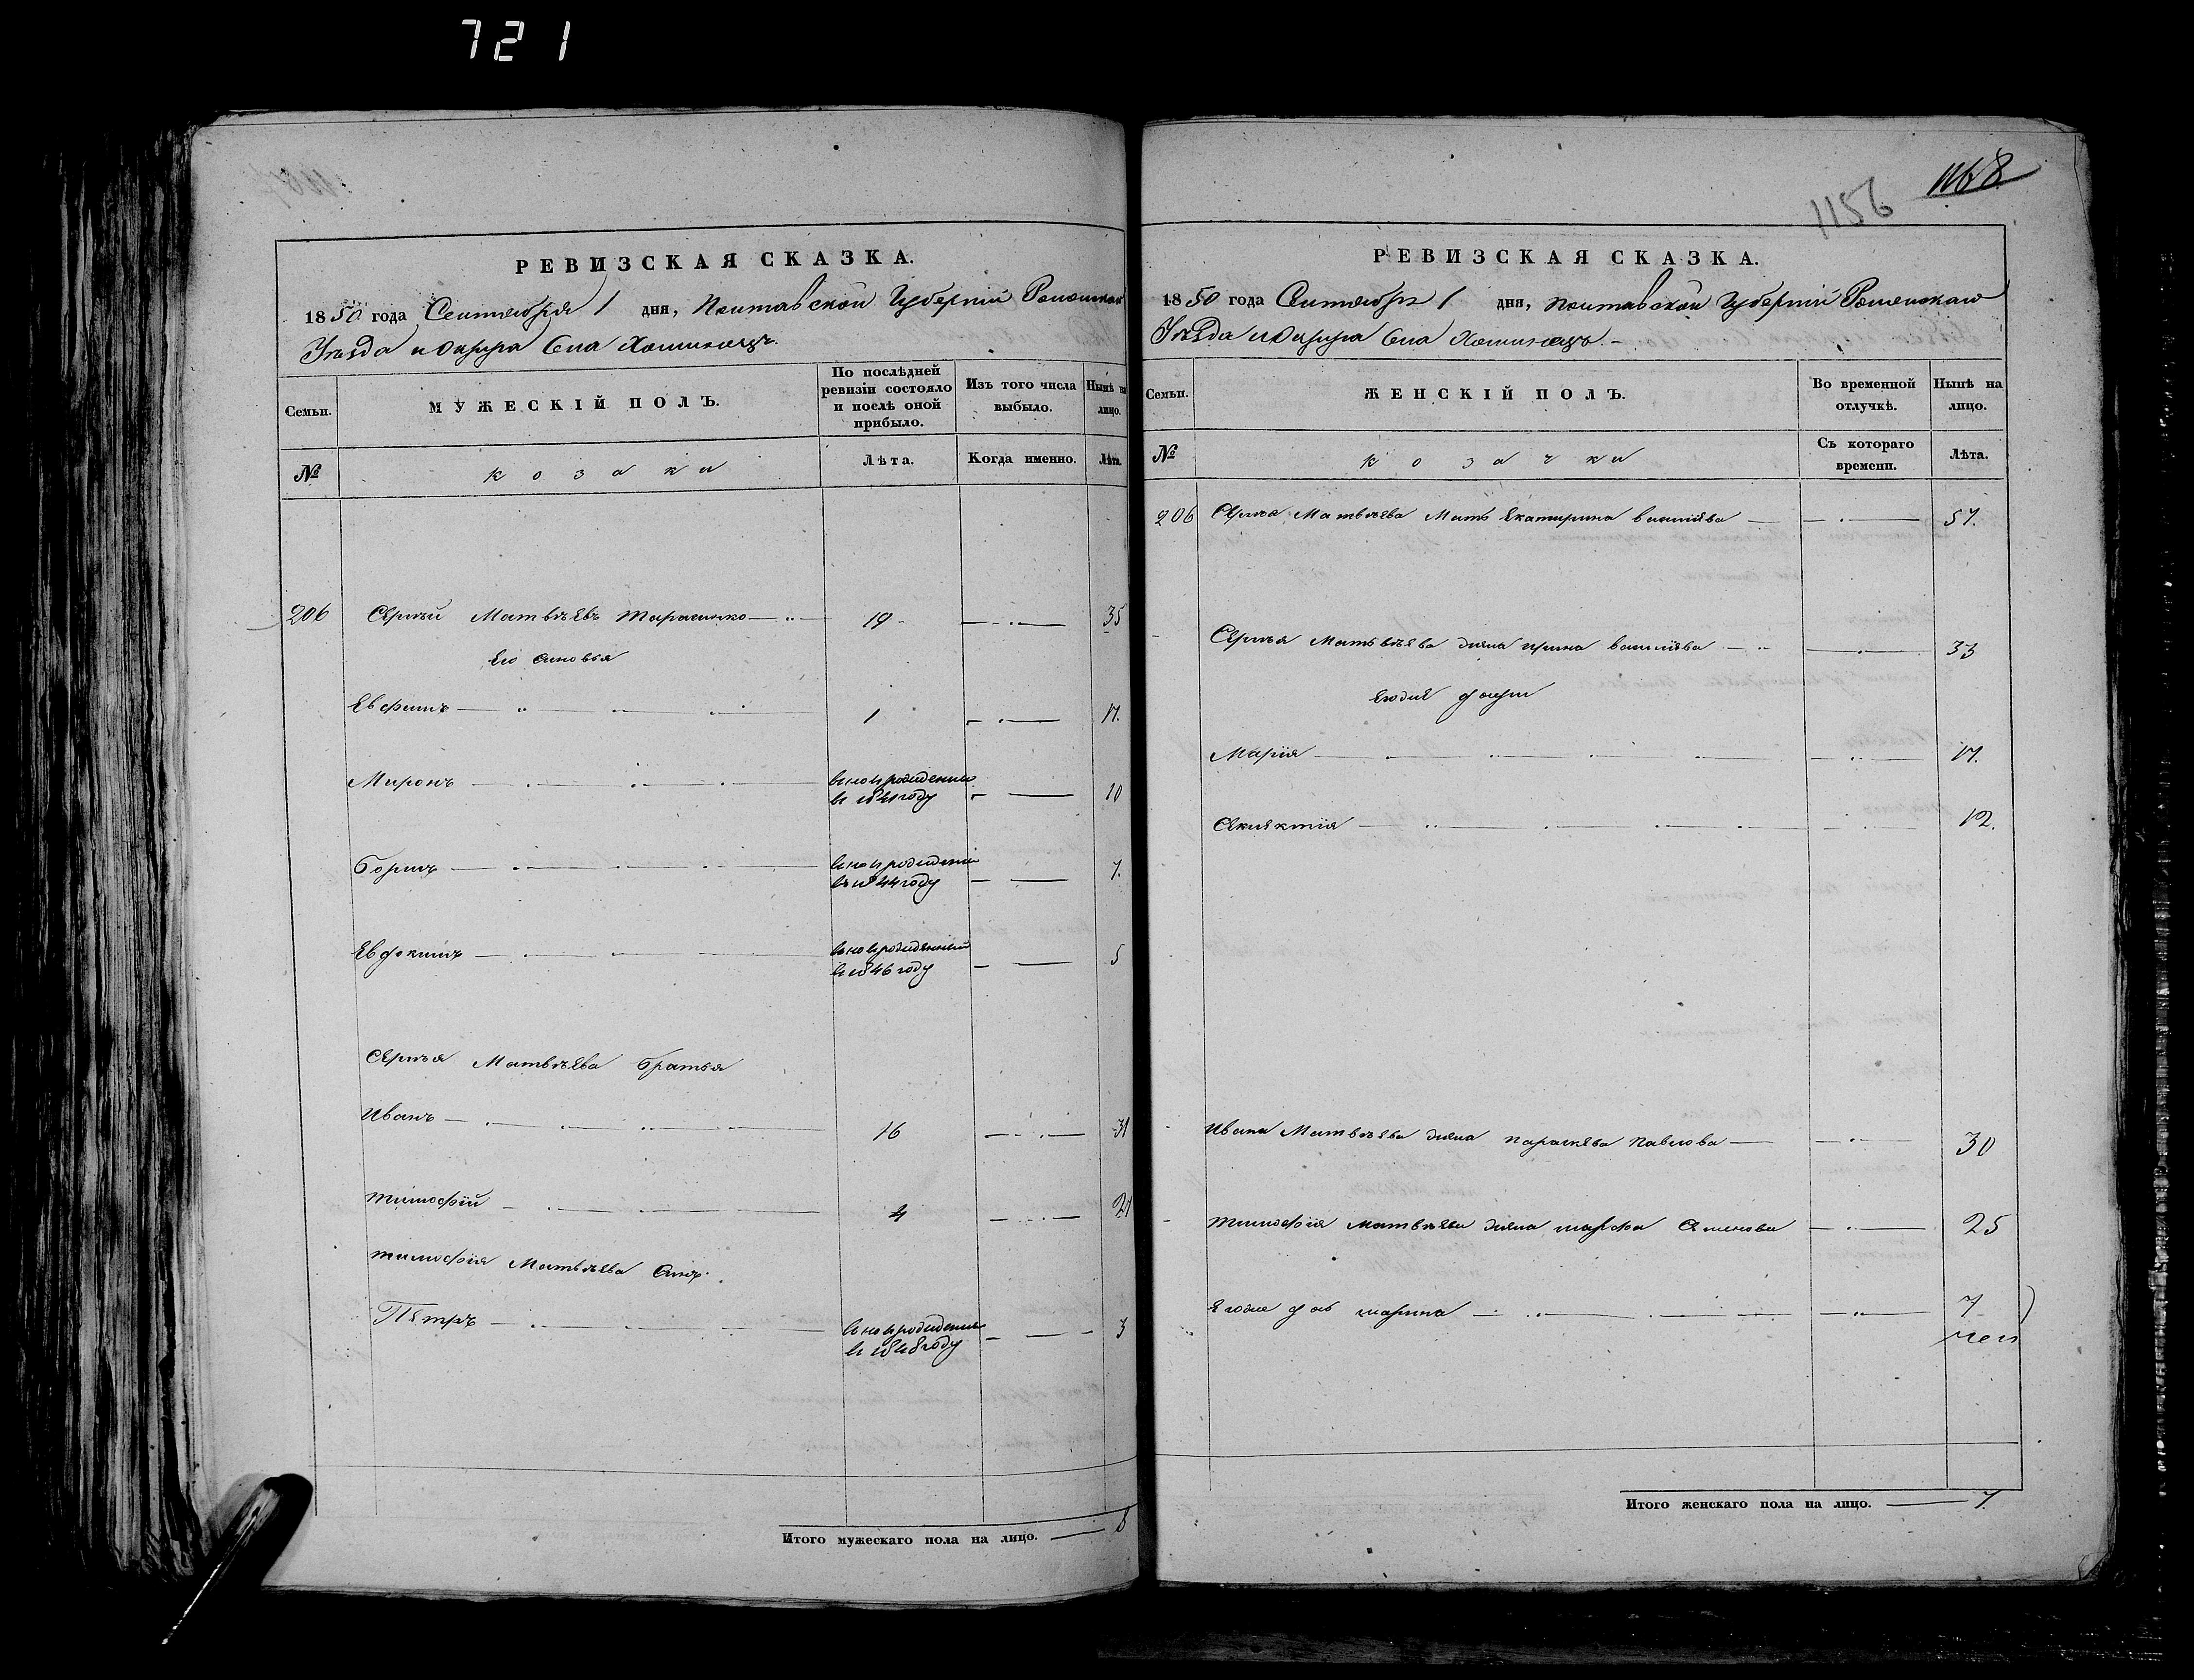 721
1168
1156
РЕВИЗСКАЯ СКАЗКА.
1850 года Сентября 1 дня, Полтавской Губернии Роменскаго
Уѣзда и Округа Села Хоминецъ.
Семьи.
МУЖЕСКІЙ ПОЛЪ.
По послѣдней ревизіи состояло и послѣ оной прибыло.
Изъ того числа выбыло.
Нынѣ на лицо.
№
козаки
Лѣта.
Когда именно.
Лѣта.
206 Сергѣй Матвѣевъ Тарасенко 19 35
Его Сыновья
Евфимъ 1 17.
Миронъ новорожденный
въ 1841 году 10
Борисъ новорожденный
въ 1844 году 7.
Евдокимъ новорожденный
въ 1846 году 5
Сергѣя Матвѣева братья
Иванъ 16 31
Тимофѣй 4 21
Тимофѣя Матвѣева Сынъ
Пётръ новорожденный
въ 1848 году 3
Итого мужескаго пола на лицо. 8
РЕВИЗСКАЯ СКАЗКА.
1850 года Сентября 1 дня, Полтавской Губерніи Роменскаго
Уѣзда и Округа Села Хоминецъ.
Семьи.
ЖЕНСКІЙ ПОЛЪ.
Во временной отлучкѣ.
Нынѣ на лицо.
№
козачки
Съ котораго времени.
Лѣта.
206 Сергѣя Матвѣева Мать Екатерина Василіева 57.
Сергѣя Матвѣева жена Ирина Василіева 33
Его же дочери
Марія 17.
12.
Ивана Матвѣева жена Параскева Павлова 30
Тимофѣя Матвѣева жена Марфа Семенова 25
Его же дочь Марина 7
мес
Итого женскаго пола на лицо. 7.